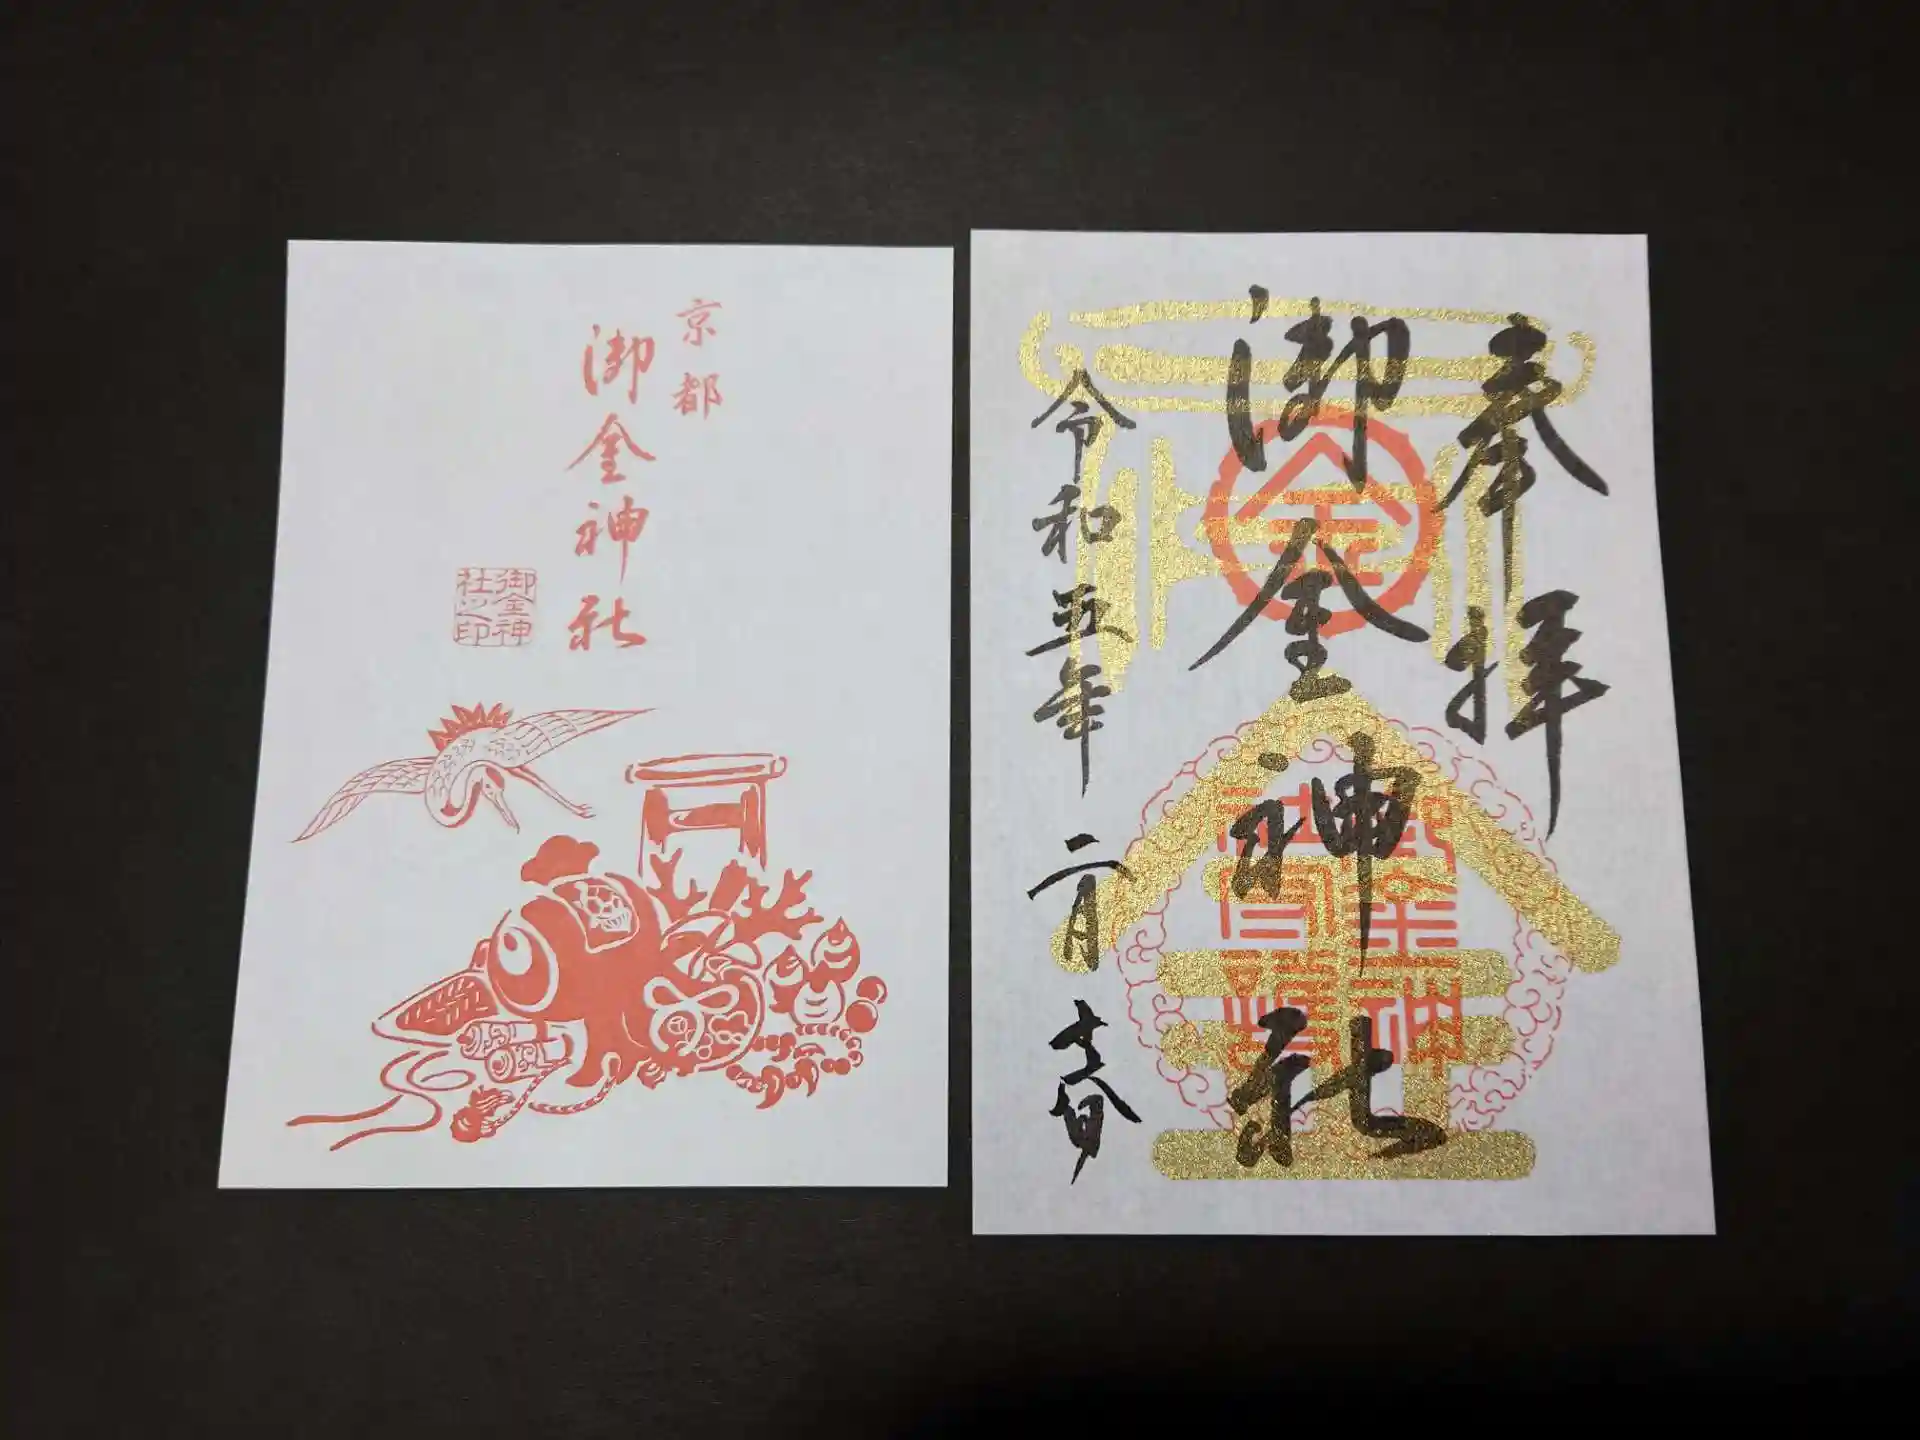 京都
御金神社
御金神
社之印
奉拝
御金神社
令和五年二月
金
御金神